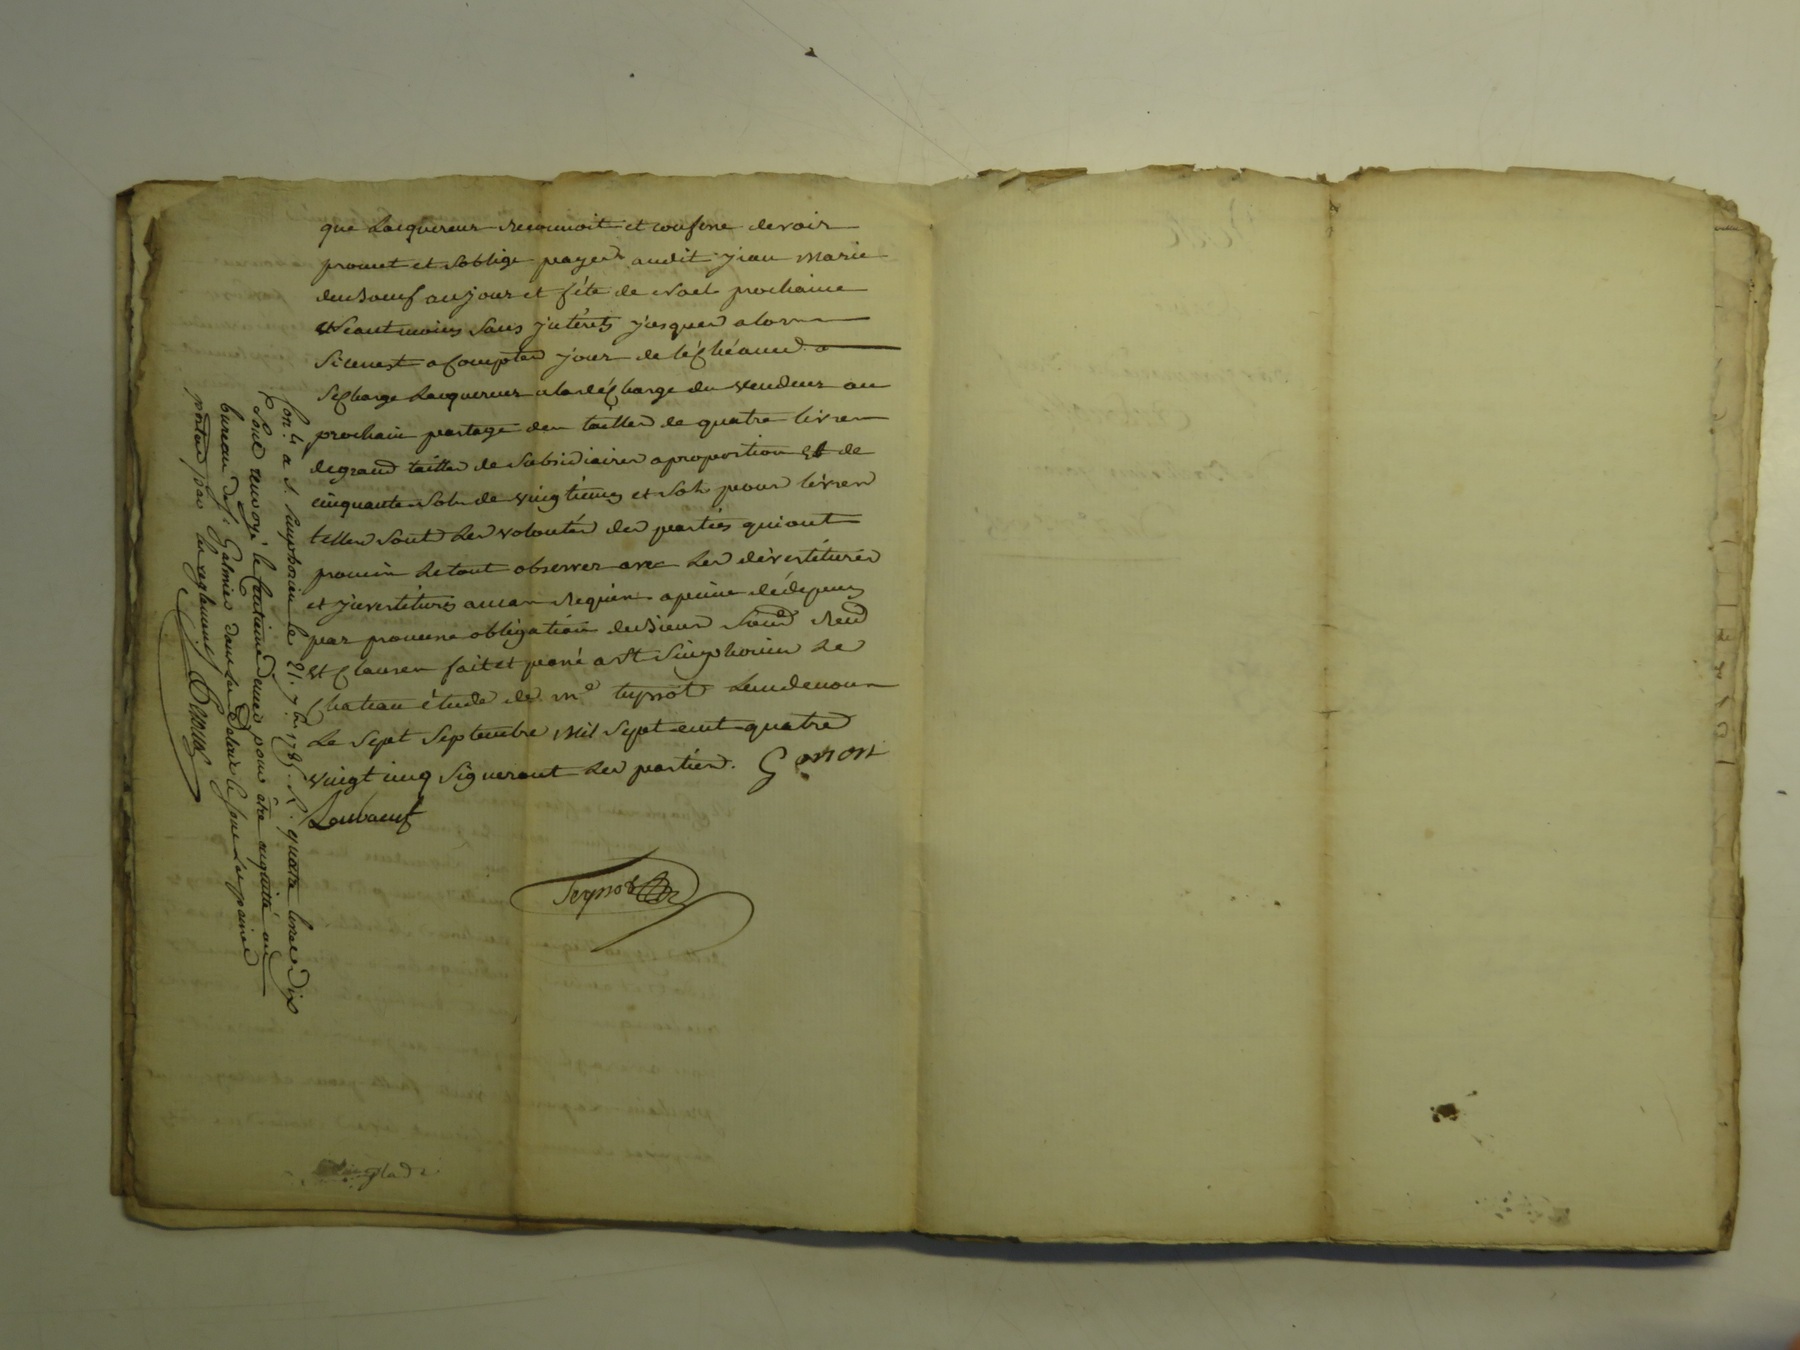 que Lacquereur reconnoit et confesse devoir
promet et soblige payer audit jean Marie
duboeuf au jour et féte de noel prochaine
Neant moins sans jntérets jusques alors
Sicenest a compter jour de léchéance
Secharge Lacquereur aladécharge du vendeur au
prochain partage des tailles de quatre livres
degrand tailles de subsidiaires aproportion et de
cinquante sols de vingtiemes et sols pour livres
telles sont Les volontés des parties qui ont
promis Letout observer avec Les dévestitures
et jnvestitures au cas requis apeine dédepens
par promesse obligation desieurs
et Clauses fait et passé a St Simphorien Le
Chateau étude de me teyssot Lundenous
Le Sept Septembre mil Sept cent quatre
vingt cinq Signeront Les parties. Gonon
Leuboeuf
Teyssot
Con.lé a S. simphorien le 21. 7bre 1785. R. quatre livres dix
Sols renvoyé le Centieme denier pour être acquitté au
bureau de St. Galmier dans le delair le sous Les peines
portées par les reglements